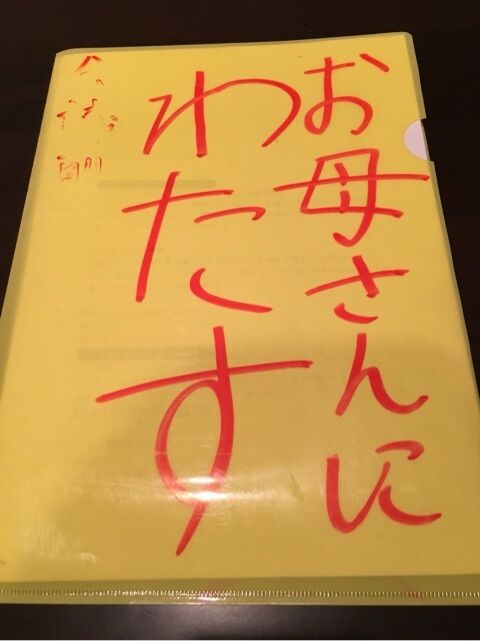 お母さんに
わたす